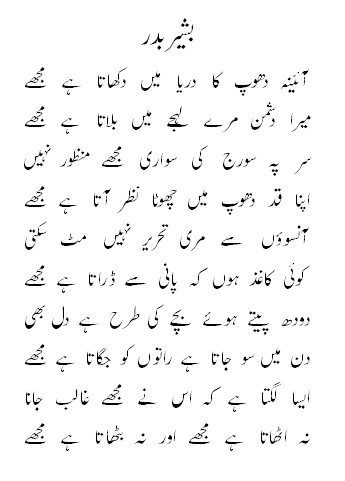 بشیر بدر
آئینہ دھوپ کا دریا میں دکھاتا ہے مجھے
میرا دشمن مرے لہجے میں بلاتا ہے مجھے
سر پہ سورج کی سواری مجھے منظور نہیں
اپنا قد دھوپ میں چھوٹا نظر آتا ہے مجھے
آنسوؤں سے مری تحریر نہیں مٹ سکتی
کوئی کاغذ ہوں کہ پانی سے ڈراتا ہے مجھے
دودھ پیتے ہوئے بچے کی طرح ہے دل بھی
دن میں سو جاتا ہے راتوں کو جگاتا ہے مجھے
ایسا لگتا ہے کہ اس نے مجھے غالب جانا
نہ اٹھاتا ہے مجھے اور نہ بٹھاتا ہے مجھے